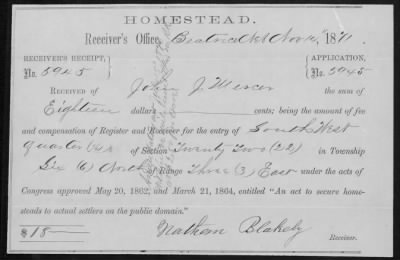 HOMESTEAD.
Receiver's Office, Beatrice Neb Nov 14, 1871.
RECEIVER'S RECEIPT, APPLICATION,
No. 5945 No. 5945
RECEIVED OF John J Mercer the sum of
Eighteen dollars cents; being the amount of fee
and compensation of Register and Receiver for the entry of South West
quarter (4) of Section Twenty Two (22) in Township
Six (6) North of Range Three (3) East under the acts of
Congress approved May 20, 1862, and March 21, 1864, entitled "An act to secure home-
steads to actual settlers on the public domain."
$18— Nathan Blakely
Receiver.